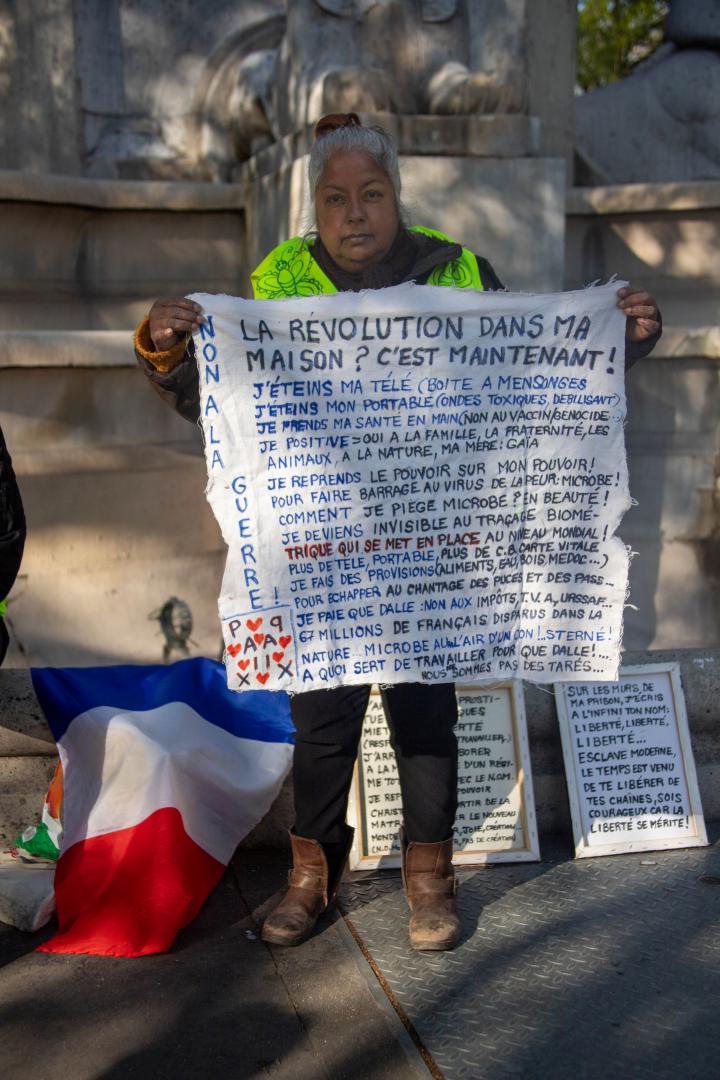 LA RÉVOLUTION DANS MA
MAISON ? C'EST MAINTENANT !
J'ÉTEINS MA TÉLÉ (BOITE A MENSONGES
J'ÉTEINS MON PORTABLE (ONDES TOXIQUES, DEBILISANT)
JE PRENDS MA SANTÉ EN MAIN (NON AU VACCIN/GENOCIDE...)
JE POSITIVE = OUI A LA FAMILLE, LA FRATERNITÉ, LES
ANIMAUX, A LA NATURE, MA MÈRE : GAÏA
JE REPRENDS LE POUVOIR SUR MON POUVOIR !
POUR FAIRE BARRAGE AU VIRUS DE LA PEUR : MICROBE !
COMMENT JE PIÈGE MICROBE ? EN BEAUTÉ !
JE DEVIENS INVISIBLE AU TRAÇAGE BIOMÉ-
TRIQUE QUI SE MET EN PLACE AU NIVEAU MONDIAL !
PLUS DE TELE, PORTABLE, PLUS DE C.B. CARTE VITALE
JE FAIS DES PROVISIONS (ALIMENTS, EAU, BOIS, MEDOC...)
POUR ECHAPPER AU CHANTAGE DES PUCES ET DES PASS...
JE PAIE QUE DALLE : NON AUX IMPÔTS, T.V.A, URSSAF...
67 MILLIONS DE FRANÇAIS DISPARUS DANS LA
NATURE... MICROBE A L'AIR D'UN CON !.. STERNÉ !
A QUOI SERT DE TRAVAILLER POUR QUE DALLE !...
NOUS SOMMES PAS DES TARÉS...
NON A LA GUERRE !
P P
A A
I I
X X
PROSTI-
QUES
MIET
ERTÉ
(RES
TRAVAILLER)
J'AR
BORER
A LA M
D'UN RÉGI-
ME TO
EC LE N.O.M.
JE REP
POUVOIR
CHRIST
PARTIR DE LA
MATR
R LE NOUVEAU
MONDE
, JOIE, CRÉATION
PAS DE CRÉATION
SUR LES MURS, DE
MA PRISON, J'ÉCRIS
A L'INFINI TON NOM :
LIBERTÉ, LIBERTÉ,
LIBERTÉ...
ESCLAVE MODERNE,
LE TEMPS EST VENU
DE TE LIBÉRER DE
TES CHAÎNES, SOIS
COURAGEUX CAR LA
LIBERTÉ SE MÉRITE !